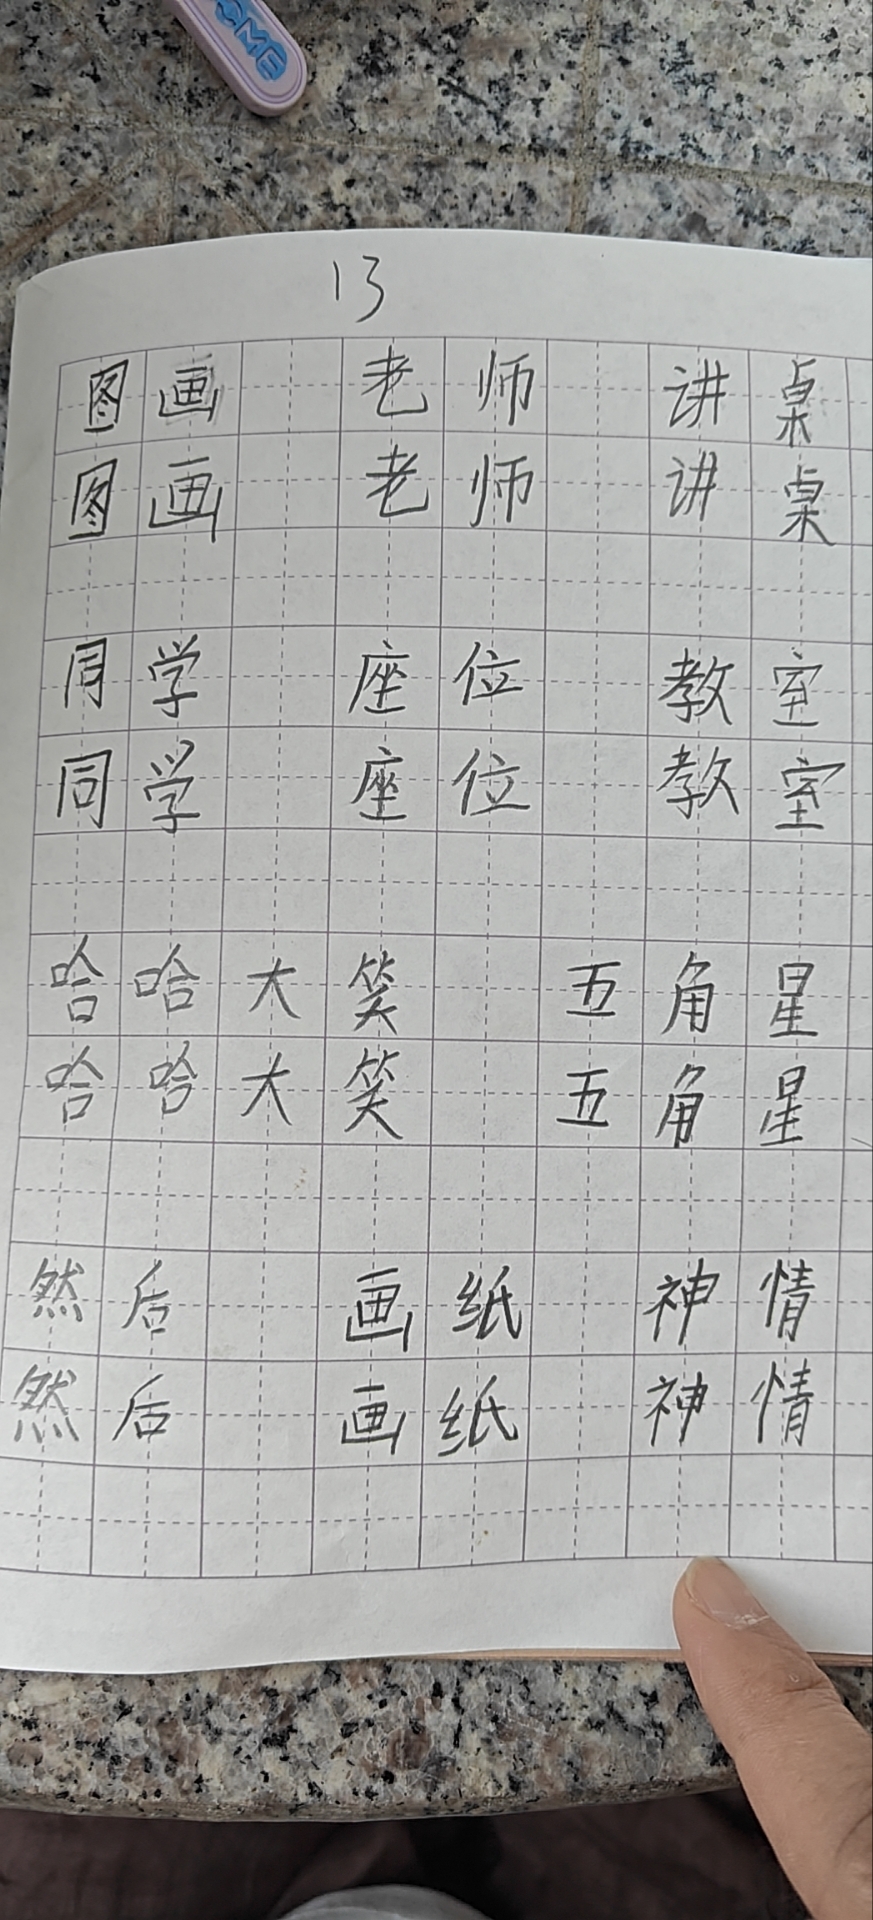 OME
13
图画 老师 讲桌
图画 老师 讲桌
同学 座位 教室
同学 座位 教室
哈哈大笑 五角星
哈哈大笑 五角星
然后 画纸 神情
然后 画纸 神情